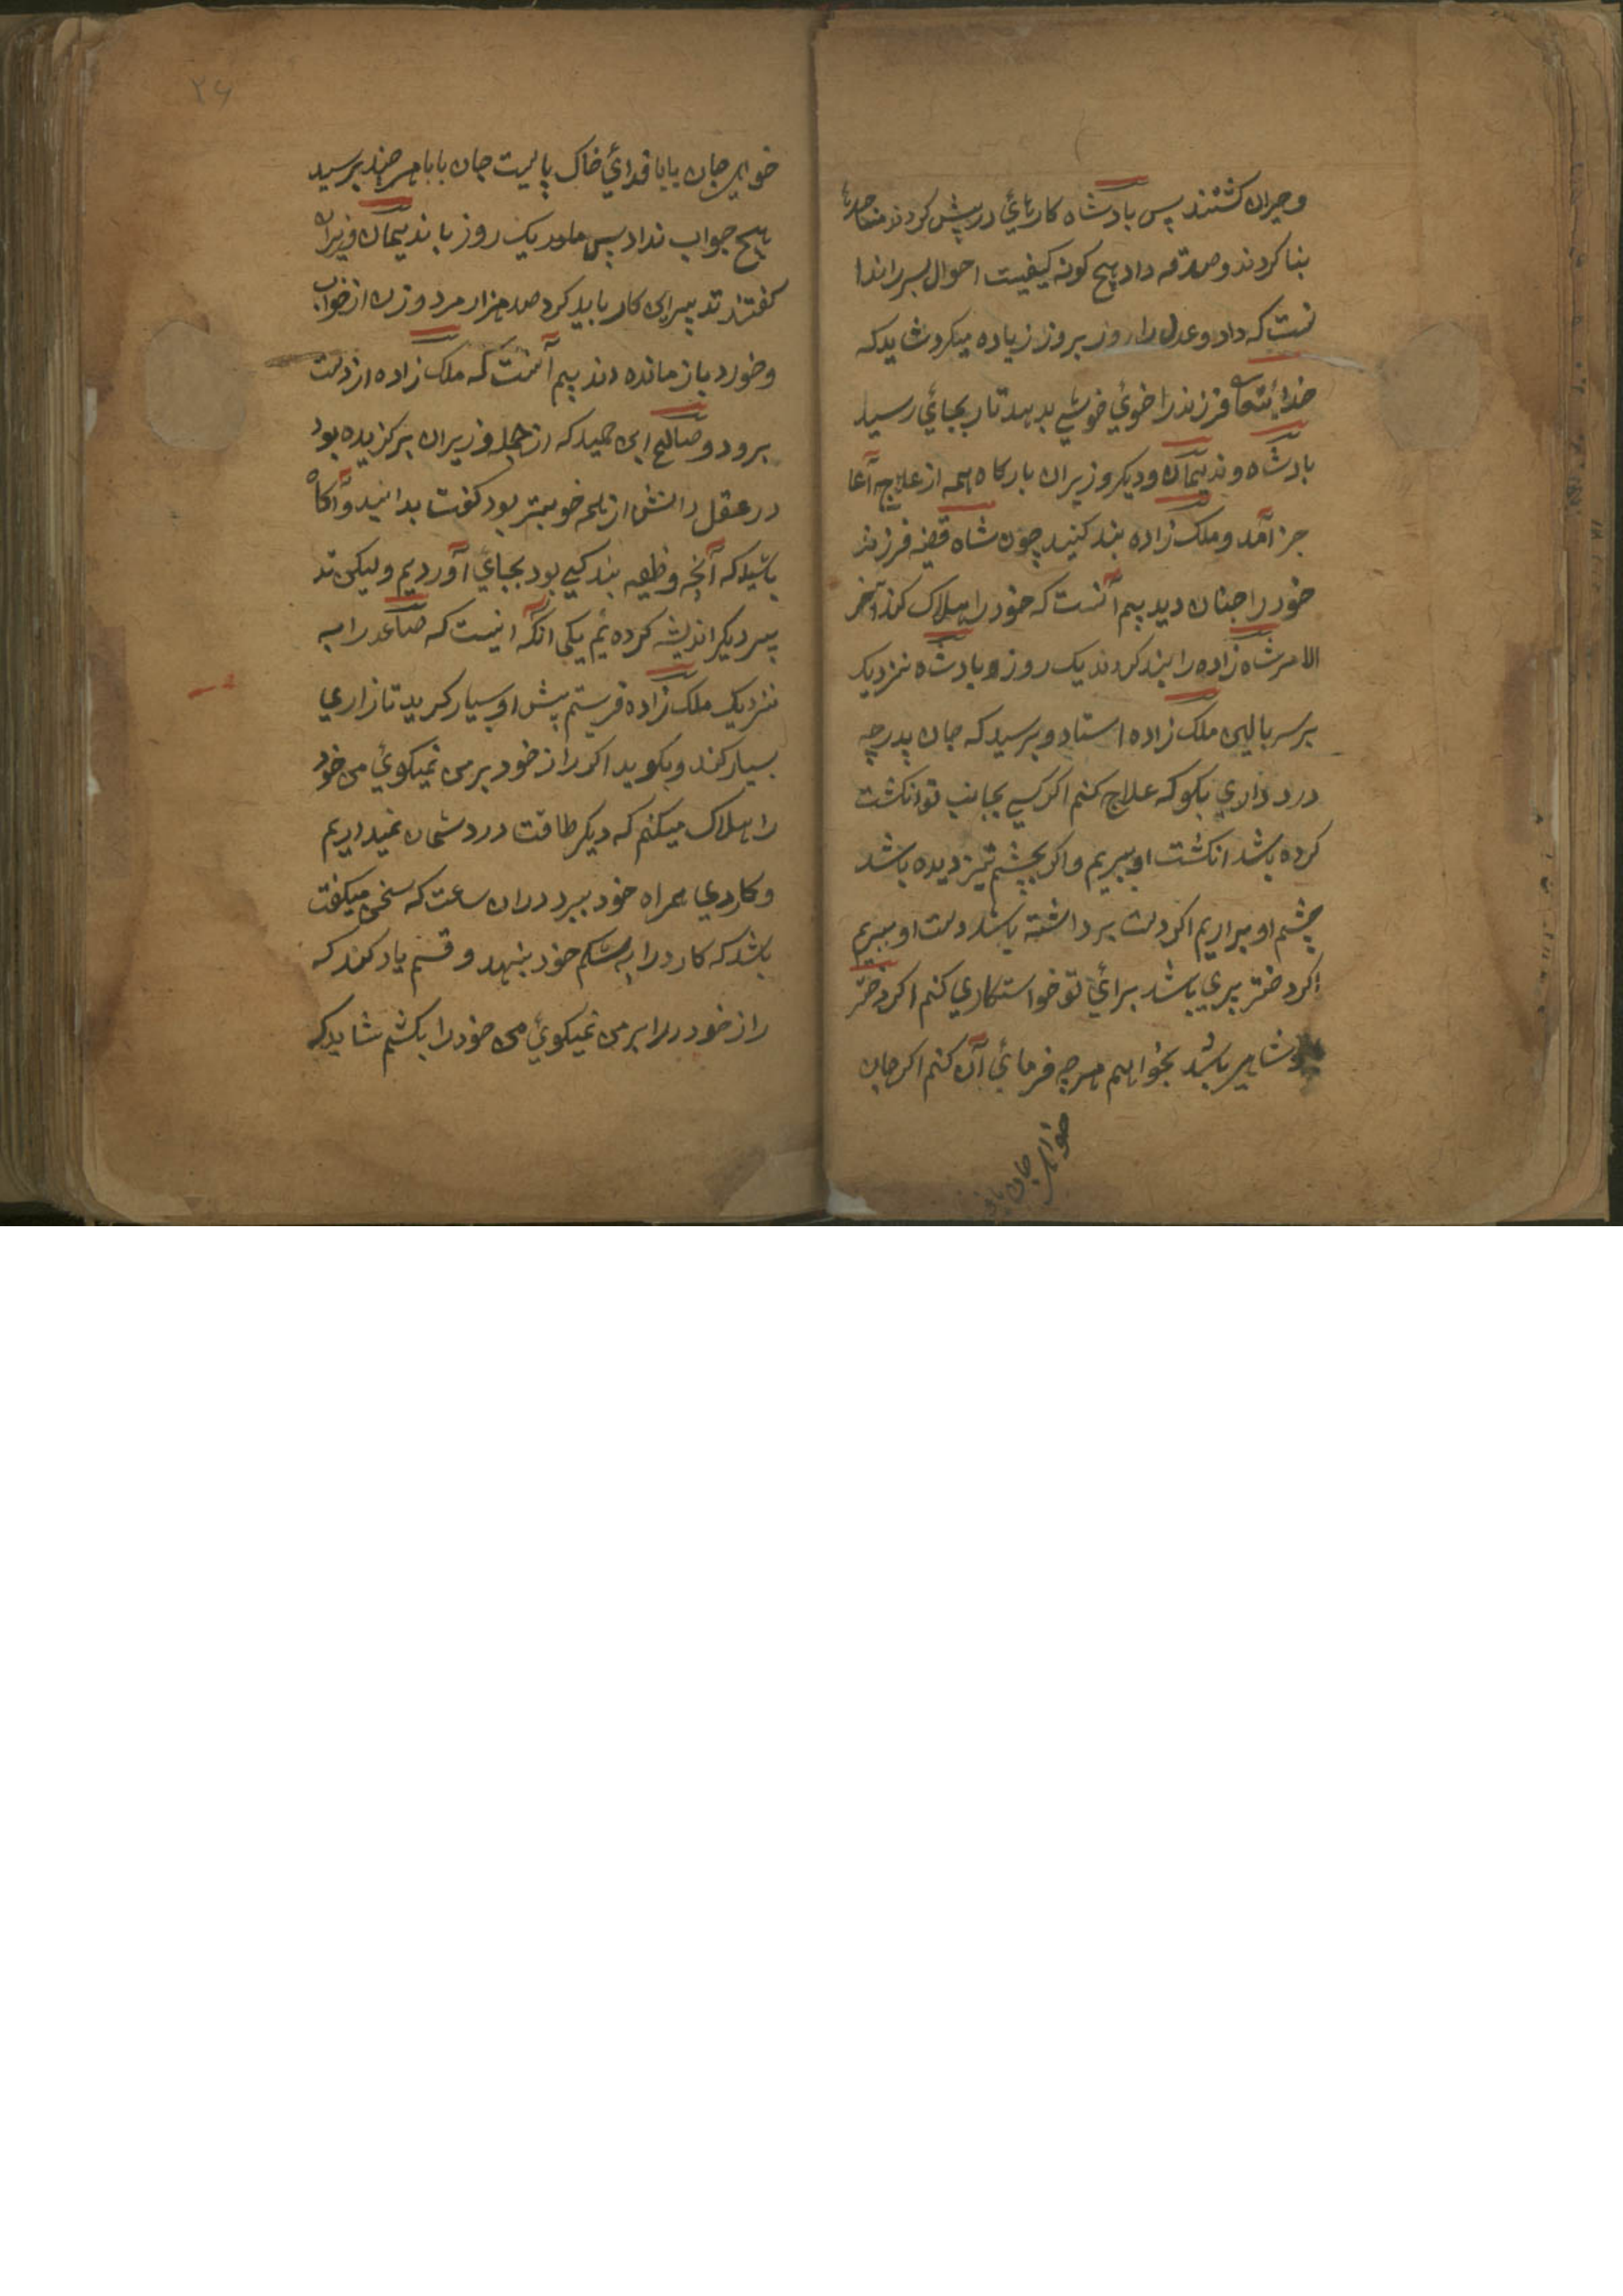 وحیران کشتند پس بادشاه کارهائي در پیش کردند
بنا کردند و صدقه داد هیچ کونه کیفیت احوال پسر را ندا
نست که داد وعدل را روز بروز زیاده میکرد شاید که
خدایتعا فرزند را خوئي خوشي بدهد تا بجائي رسید
بادشاه و ندیمان و دیکر وزیران بارکاه همه از علاج آعا
جز آمد و ملک زاده بند کنید چون شاه قضه فرزند
خود را چنان دید بیم آنست که خود را هلاک کند آخر
الامر شاه زاده را بند کردند یک روز و بادشاه نزدیک
بر سر بالین ملک زاده استاد و پرسید که جان پدر چه
درد داري بکو که علاج کنم اکر کسي بجانب تو انکشت
کرده باشد انکشت او ببریم و اکر بچشم تیز دیده باشد
چشم او براریم اکر دست برداشته باشد دست او ببریم
اکر دختر پري باشد برائي تو خواستکاري کنم اکر دختر
باشد بخواهم هرچه فرمائي آن کنم اکر جان
خواهي جان بابا
۲۶
خواهي جان بابا فدائي خاک پایت جان بابا هر چند پرسید
هیچ جواب نداد پس یک روز با ندیمان وزیران
کفتند تدبیر این کار باید کرد صد هزار مرد و زن از خواب
وخورد باز مانده اند بیم آنست که ملک زاده از دست
برود و صالح ابن حمید که از جمله وزیران برکزیده بود
در عقل دانش از همه خوبتر بود کفت بدانید و آکاه
باشید که آنچه وظیفه بندکي بود بجائي آوردیم ولیکن تد
بیر دیکر اندیشه کرده ئم یکي آنکه اینست که صاعد را به
نزدیک ملک زاده فرستم پیش او بسیار کریه تا زاري
بسیار کند و بکوید اکر راز خود بر من نمیکوئي من خود
را هلاک میکنم که دیکر طاقت درد شمان نمیداریم
و کاردي همراه خود ببرد دران ساعت که سخن میکفت
باشد که کارد را به شکم خود بنهد و قسم یاد کند که
راز خود را بر من نمیکوئي من خود را بکشم شاید که